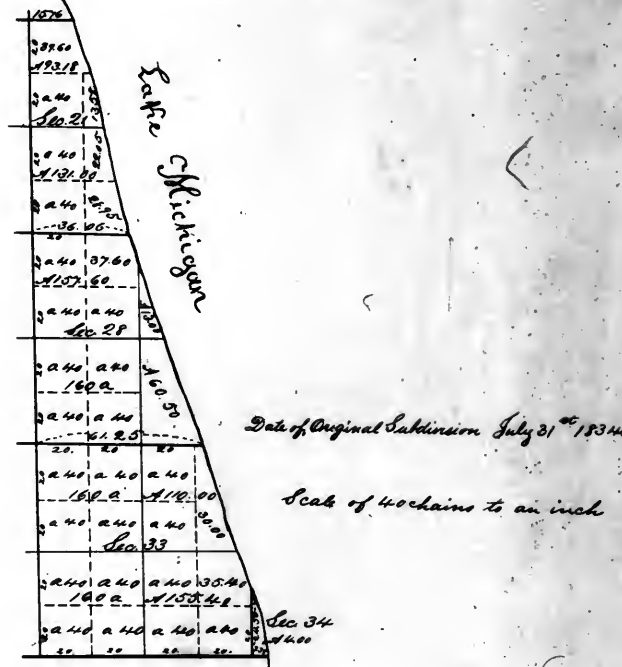 1576
20
39.60
A93.18
20
a 40
13.55
Sec. 21
20
a 40
22.05
A131.00
20
a 40
36.06
20
20
a 40
37.60
A157.60
20
a 40
a 40
Sec. 28
20
a 40
a 40
160 a
A60.50.
20
a 40
a 40
61.25
20.
20
20
20
a 40
a 40
a 40
160 a
A110.00
20
a 40
a 40
a 40
30.00
Sec. 33
20
a 40
a 40
a 40
35.40
160 a
A155.40
20
a 40
a 40
a 40
a 40
20.
20.
20.
20.
Sec 34
A4.00
Lake Michigan
Date of Original Subdivision July 31st 1834
Scale of 40 chains to an inch